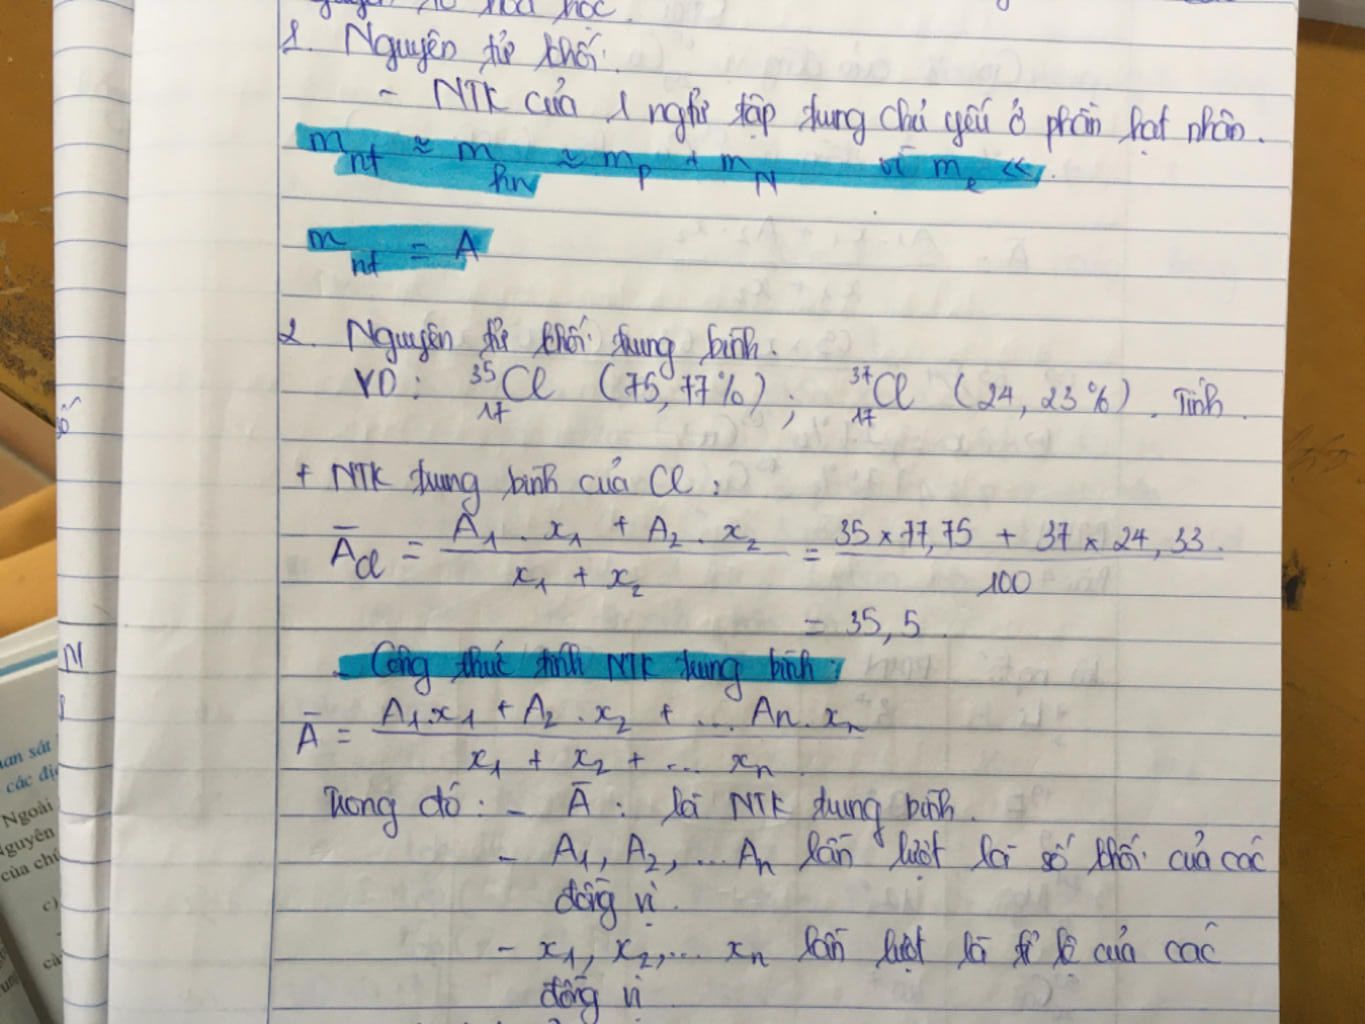 hóa học.
1. Nguyên tử khối.
- NTK của 1 ngtử tập trung chủ yếu ở phần hạt nhân.
m nt ≈ m hn ≈ m P + m N vì m e <<.
m nt = A
2. Nguyên tử khối trung bình.
VD: ³⁵₁₇Cl (75,77%); ³⁷₁₇Cl (24,23%). Tính.
+ NTK trung bình của Cl:
Ā Cl = (A₁.x₁ + A₂.x₂)/(x₁ + x₂) = (35 x 77,75 + 37 x 24,33.)/100
= 35,5.
- Công thức tính NTK trung bình:
Ā = (A₁.x₁ + A₂.x₂ + ... An.xn)/(x₁ + x₂ + ... xn)
Trong đó: - Ā: là NTK trung bình.
- A₁, A₂, ... An lần lượt là số khối của các
đồng vị.
- x₁, x₂,... xn lần lượt là tỉ lệ của các
đồng vị.
số
N
các
Ngoài
Nguyên
của
c)